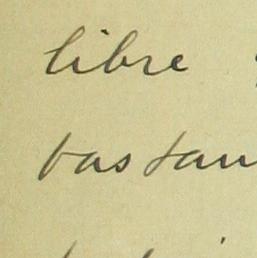 libre
bastan